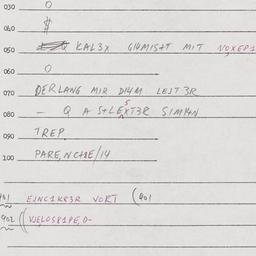 030 O
040 $
050 Q KAL3X GIAMIS+T MIT NOXEP1
060 O
070 DERLANG MIR DIAM LEIT3R
080 – Q A S+LEXT3R SIMIAN
090 TREP
100 PARE,NCHSE/14
401 EJNC1KR3R VORT (401
402 (( VJELOS81PE,D-